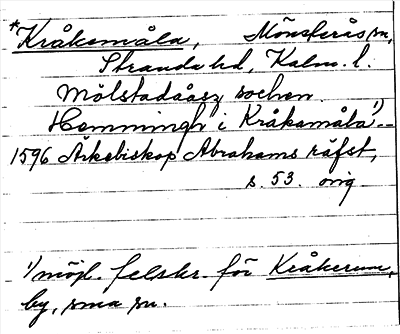 *Kråkemåla, Mönsterås sn,
Stranda hd, Kalm. l.
Mölstadååsz sochen.
Hemmingh i Kråkamåla¹⁾ --
1596 Ärkebiskop Abrahams räfst,
s. 53. orig.
¹⁾ möjl. felskr. för Kråkerum,
by, sma sn.